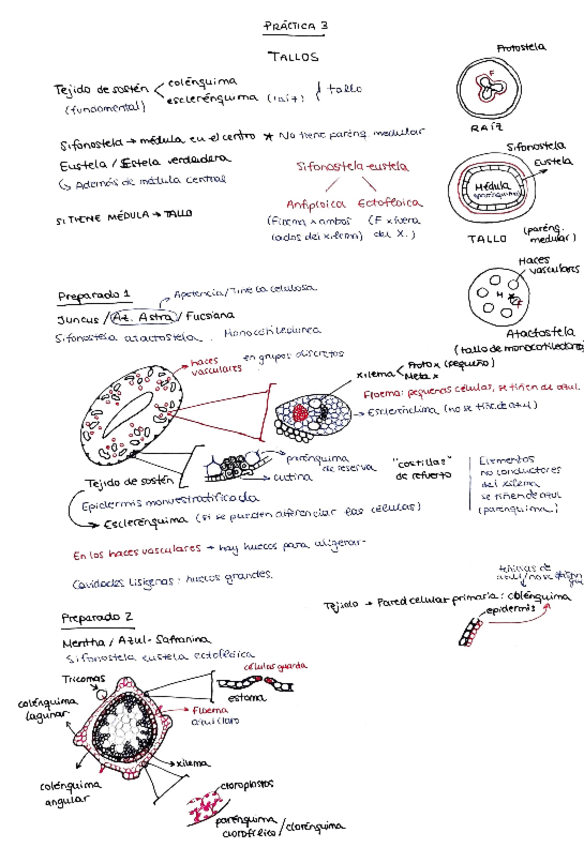 PRÁCTICA 3
TALLOS
Protostela
Tejido de sostén
(fundamental)
colénquima
esclerénquima (raíz)
tallo
F
RAÍZ
Sifonostela → médula en el centro * No tiene parénq. medular
Eustela / Estela verdadera
↳ Además de médula central
SI TIENE MÉDULA → TALLO
Sifonostela eustela
Anfiploica
(Floema x ambos
lados del xilema)
Ectofloica
(F x fuera
del X.)
Sifonostela
Eustela
Médula
TALLO
(parénq.
medular)
Haces
vasculares
M
X
F
Atactostela
(tallo de monocotiledónea)
Preparado 1
Apetencia / Tiñe la celulosa
Juncus / Az. Astra / Fucsiana
Sifonostela atactostela. Monocotiledónea
haces
vasculares
en grupos discretos
xilema
Proto x (pequeño)
Meta x
Floema: pequeñas células, se tiñen de azul.
Esclerénquima (no se tiñe de azul)
Tejido de sostén
parénquima
de reserva
cutina
"costillas"
de refuerzo
Elementos
no conductores
del xilema
se tiñen de azul
(parénquima)
Epidermis monoestratificada
→ Esclerénquima (si se pueden diferenciar las células)
En los haces vasculares → hay huecos para aligerar
Cavidades lisígenas: huecos grandes.
Tejido → Pared celular primaria: colénquima
epidermis
Preparado 2
Mentha / Azul-Safranina
Sifonostela eustela ectofloica
Tricomas
colénquima
lagunar
células guarda
estoma
Floema
azul claro
xilema
colénquima
angular
cloroplastos
parénquima
clorofílico / clorénquima